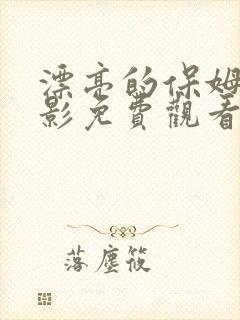 漂亮的保姆
影免費觀看
落塵筱